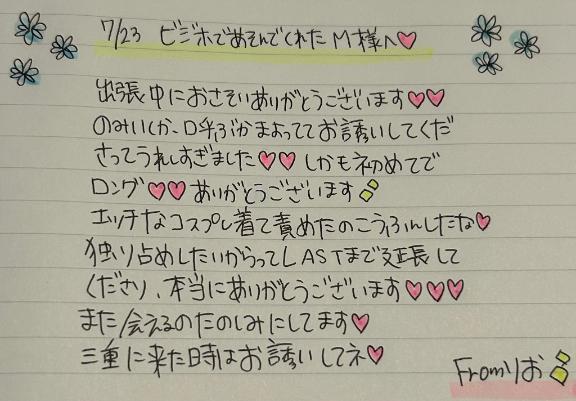 7/23 ビジホであそんでくれたM様へ♡
出張中におさそいありがとうございます♡♡
のみいくか、呼ぶかまよっててお誘いしてくだ
さってうれしすぎました♡♡しかも初めてで
ロング♡♡ありがとうございます
エッチなコスプレ着て責めたのこうふんしたな♡
独り占めしたいからってLASTまで延長して
くださり、本当にありがとうございます♡♡♡
また会えるのたのしみにしてます♡
三重に来た時はお誘いしてネ♡
Fromりお